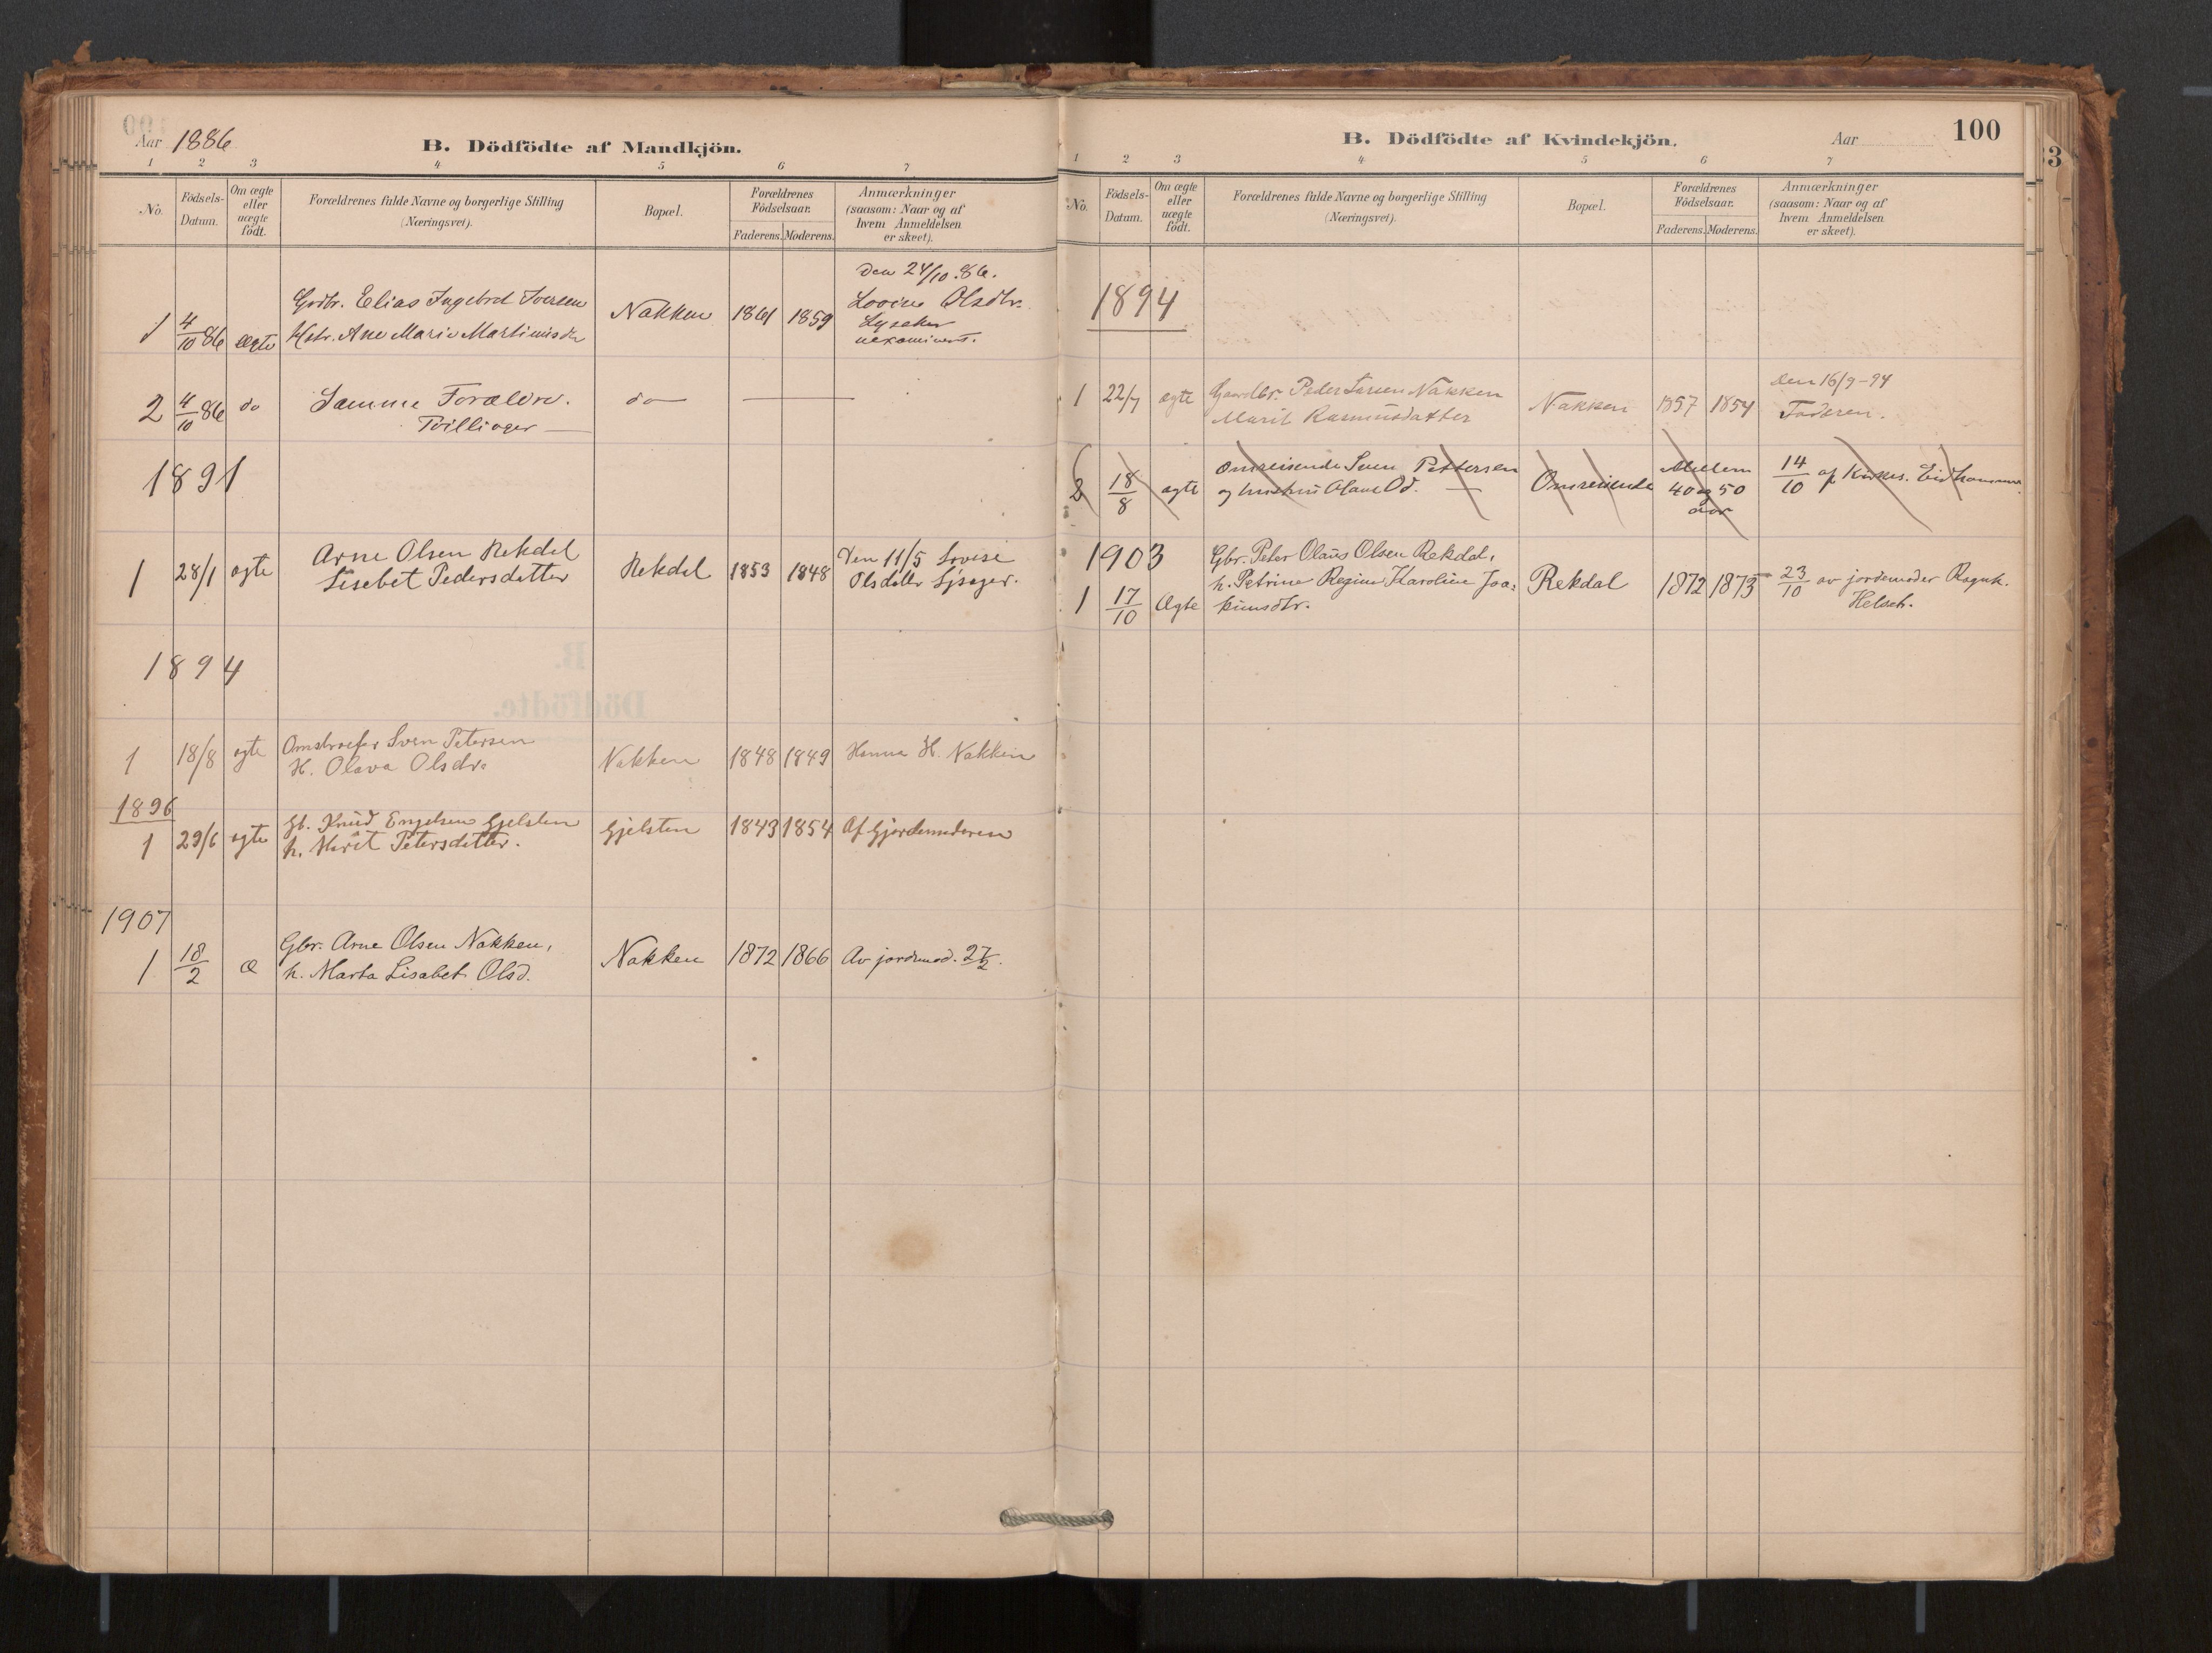 Aar 1886
B. Dödfödte af Mandkjön.
1 2 3 4 5 6 7
No.
Födsels-
Datum.
Om ægte
eller
uægte
födt.
Forældrenes fulde Navne og borgerlige Stilling
(Næringsvei).
Bopæl.
Forældrenes
Födselsaar.
Faderens. Moderens.
Anmærkninger
(saasom: Naar og af
hvem Anmeldelsen
er skeet).
1 4/10 86 ægte
Grdbr. Elias Ingebret Iversen
Hstr. Ane Marie Martinusdr
Nakken 1861 1859
den 24/10 .86.
Lovise Olsdtr.
uexaminert.
2 4/10 86 do
Samme Forældre.
Tvillinger —
do —
1891
1 28/1 ægte
Arne Olsen Rekdal
Lisebet Pedersdatter
Rekdal 1853 1848
Den 11/5 Lovise
Olsdatter
1894
1 18/8 ægte
Omstreifer Sven Petersen
H. Olava Olsdr.
Nakken 1848 1849 Hanna H. Nakken
1896
1 29/6 ægte
Gb. Knud Engelsen Gjelsten
h. Marit Petersdatter.
Gjelsten 1843 1854 Af Gjordemoderen
1907
1 18/2 æ
Gbr. Arne Olsen Nakken,
h. Marta Lisabet Olsd.
Nakken 1872 1866 Av jordmod. 27/2.
B. Dödfödte af Kvindekjön.
Aar
100
1 2 3 4 5 6 7
No.
Födsels-
Datum.
Om ægte
eller
uægte
födt.
Forældrenes fulde Navne og borgerlige Stilling
(Næringsvei).
Bopæl.
Forældrenes
Födselsaar.
Faderens. Moderens.
Anmærkninger
(saasom: Naar og af
hvem Anmeldelsen
er skeet).
1894
1 22/7 ægte
Gaardbr. Peder Larsen Nakken
Marit Rasmusdatter
Nakken 1857 1854
den 16/9-94
Faderen.
2 18/8 ægte
Omreisende Sven Pettersen
og hustru Olava Od. —
Omreisende
Mellem
40 og 50
aar
14/10 af Kirkes.
1903
1 17/10 Ægte
Gbr. Peter Olaus Olsen Rekdal,
h. Petrine Regine Karoline Joa-
kimsdtr.
Rekdal 1872 1873
23/10 av jordemoder Ragnh.